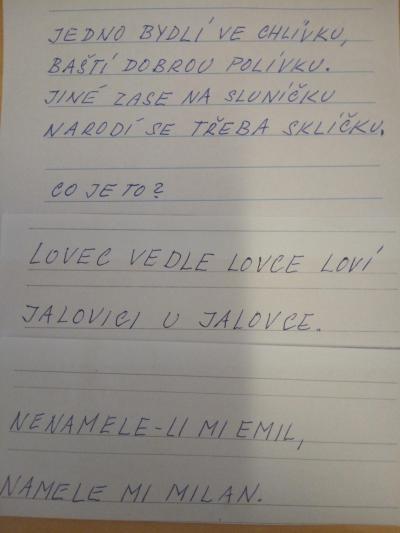 JEDNO BYDLÍ VE CHLÍVKU,
BAŠTÍ DOBROU POLÍVKU.
JINÉ ZASE NA SLUNÍČKU
NARODÍ SE TŘEBA SKLÍČKU.
CO JE TO?
LOVEC VEDLE LOVCE LOVÍ
JALOVICI U JALOVCE.
NENAMELE-LI MI EMIL,
NAMELE MI MILAN.